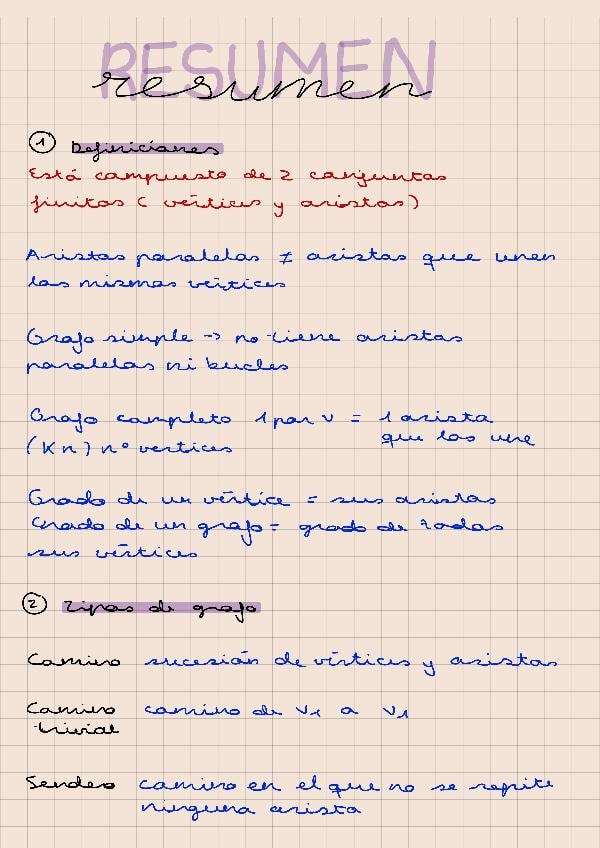 RESUMEN
resumen
1 Definiciones
Está compuesto de 2 conjuntos
finitos ( vértices y aristas)
Aristas paralelas ≠ aristas que unen
los mismos vértices
Grafo simple -> no tiene aristas
paralelas ni bucles
Grafo completo 1 par v = 1 arista
que los une
(Kn) nº vertices
Grado de un vértice = sus aristas
Grado de un grafo = grado de todos
sus vértices
2 Tipos de grafo
Camino sucesión de vértices y aristas
Camino camino de v1 a v1
trivial
Sendero camino en el que no se repite
ninguna arista